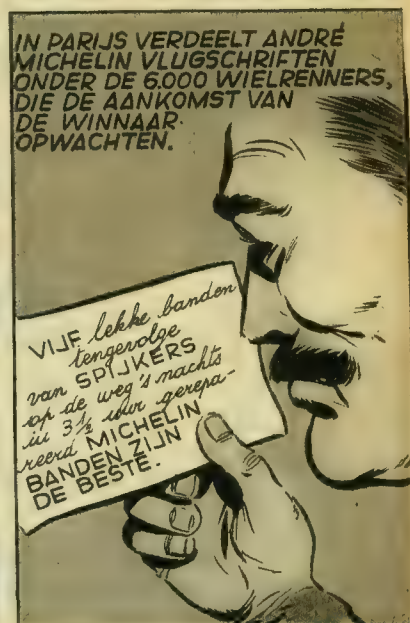 IN PARIJS VERDEELT ANDRÉ
MICHELIN VLUGSCHRIFTEN
ONDER DE 6.000 WIELRENNERS,
DIE DE AANKOMST VAN
DE WINNAAR
OPWACHTEN.
VIJF lekke banden
tengevolge
van SPIJKERS
op de weg 's nachts
in 3½ uur gerepa-
reerd MICHELIN
BANDEN ZIJN
DE BESTE.